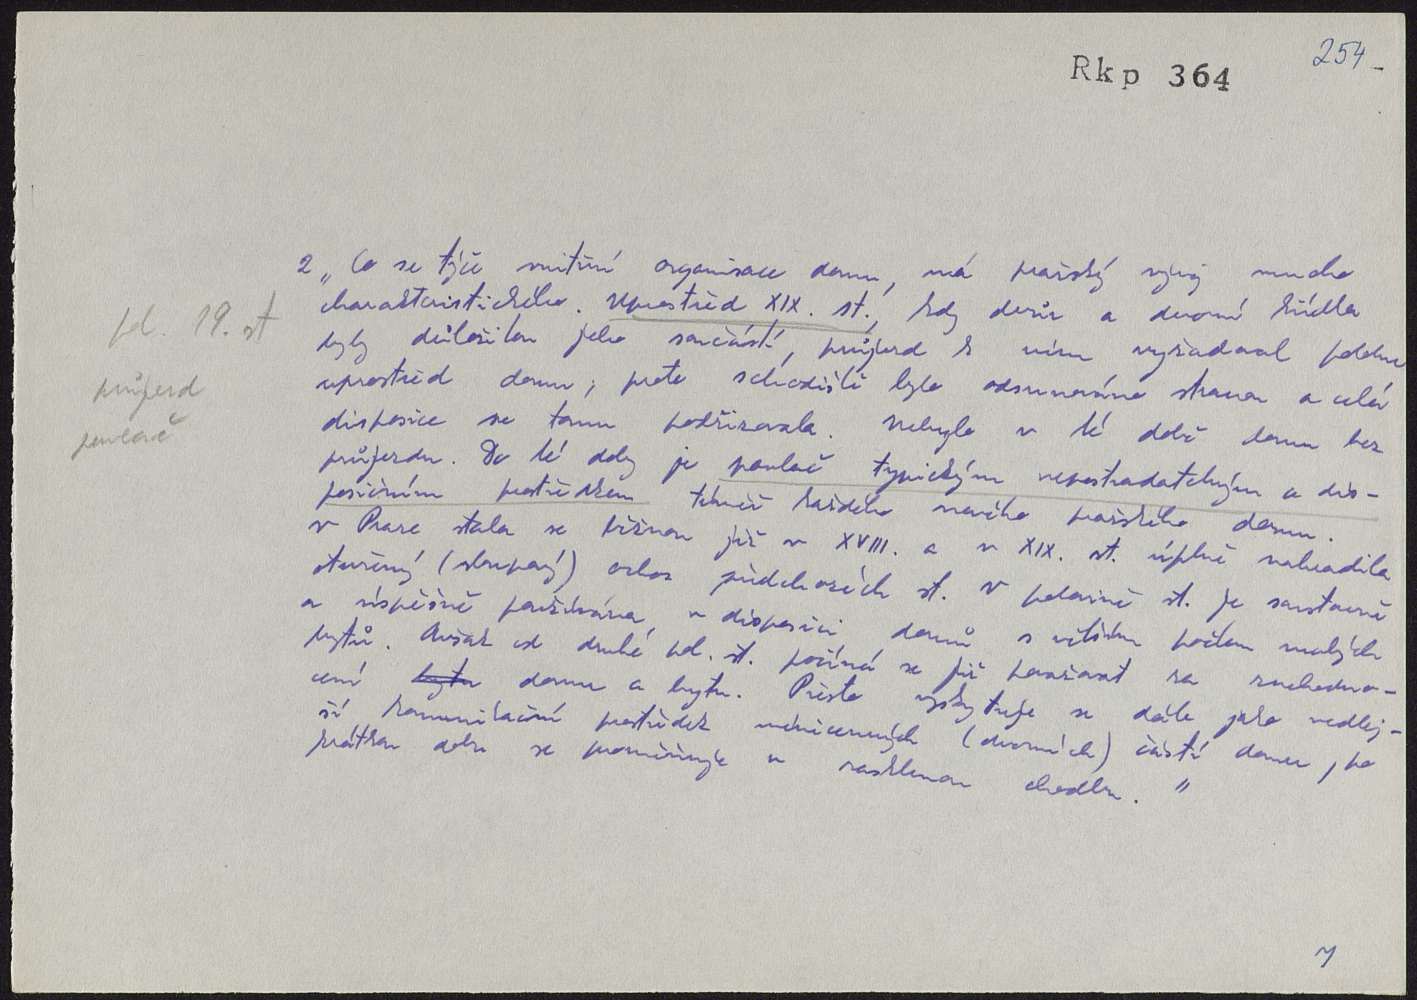 254-
Rkp 364
2 „Co se týče vnitřní organisace domu, má pražský vývoj mnoho
charakteristického. Uprostřed XIX. st., kdy dvůr a dvorní křídla
byly důležitou jeho součástí, průjezd k nim vyžadoval polohu
uprostřed domu; proto schodiště bylo odsunováno stranou a celá
disposice se tomu podřizovala. Nebylo v té době domu bez
průjezdu. Do té doby je pavlač typickým nepostradatelným a dis-
posičním prostředkem téměř každého nového pražského domu.
V Praze stala se běžnou již v XVIII. a v XIX. st. úplně nahradila
otevřený (sloupový) ochoz předchozích st. V polovině st. je soustavně
a úspěšně používána v disposici domů s větším počtem malých
bytů. Avšak od druhé pol. st. počíná se již považovat za znehodno-
cení bytu domu a bytu. Přesto vyskytuje se dále jako vedlej-
ší komunikační prostředek méněcenných (dvorních) částí domu, po
krátkou dobu se proměňuje v zasklenou chodbu."
pol. 19. st
průjezd
pavlač